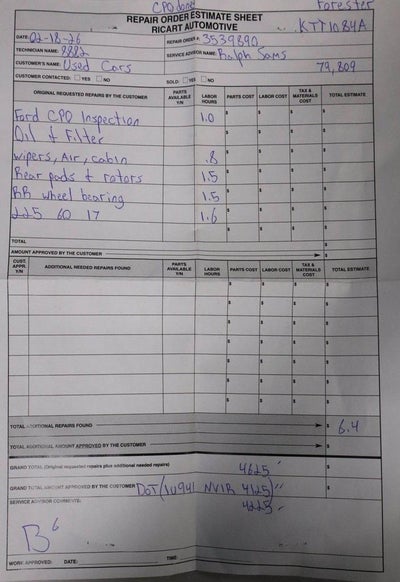 CPO done Forester
REPAIR ORDER ESTIMATE SHEET
RICART AUTOMOTIVE KTT1084A
DATE: 02-18-26 REPAIR ORDER #: 3539890
TECHNICIAN NAME: 8882 SERVICE ADVISOR NAME: Ralph Sams
CUSTOMER'S NAME: Used Cars 79,809
CUSTOMER CONTACTED: YES NO SOLD: YES NO
ORIGINAL REQUESTED REPAIRS BY THE CUSTOMER PARTS AVAILABLE Y/N LABOR HOURS PARTS COST LABOR COST TAX & MATERIALS COST TOTAL ESTIMATE
Ford CPO Inspection 1.0 $ $ $ $
Oil & Filter $ $ $ $
wipers, Air, cabin .8 $ $ $ $
Rear pads & rotors 1.5 $ $ $ $
RR wheel bearing 1.5 $ $ $ $
225 60 17 1.6 $ $ $ $
TOTAL $
AMOUNT APPROVED BY THE CUSTOMER $
CUST. APPR. Y/N ADDITIONAL NEEDED REPAIRS FOUND PARTS AVAILABLE Y/N LABOR HOURS PARTS COST LABOR COST TAX & MATERIALS COST TOTAL ESTIMATE
$ $ $ $
$ $ $ $
$ $ $ $
$ $ $ $
$ $ $ $
$ $ $ $
$ $ $ $
TOTAL ADDITIONAL REPAIRS FOUND $ 6.4
TOTAL ADDITIONAL AMOUNT APPROVED BY THE CUSTOMER $
GRAND TOTAL (Original requested repairs plus additional needed repairs) 4625
GRAND TOTAL AMOUNT APPROVED BY THE CUSTOMER DOT NVIR 4125
SERVICE ADVISOR COMMENTS: 4225
B6
WORK APPROVED: DATE: TIME: